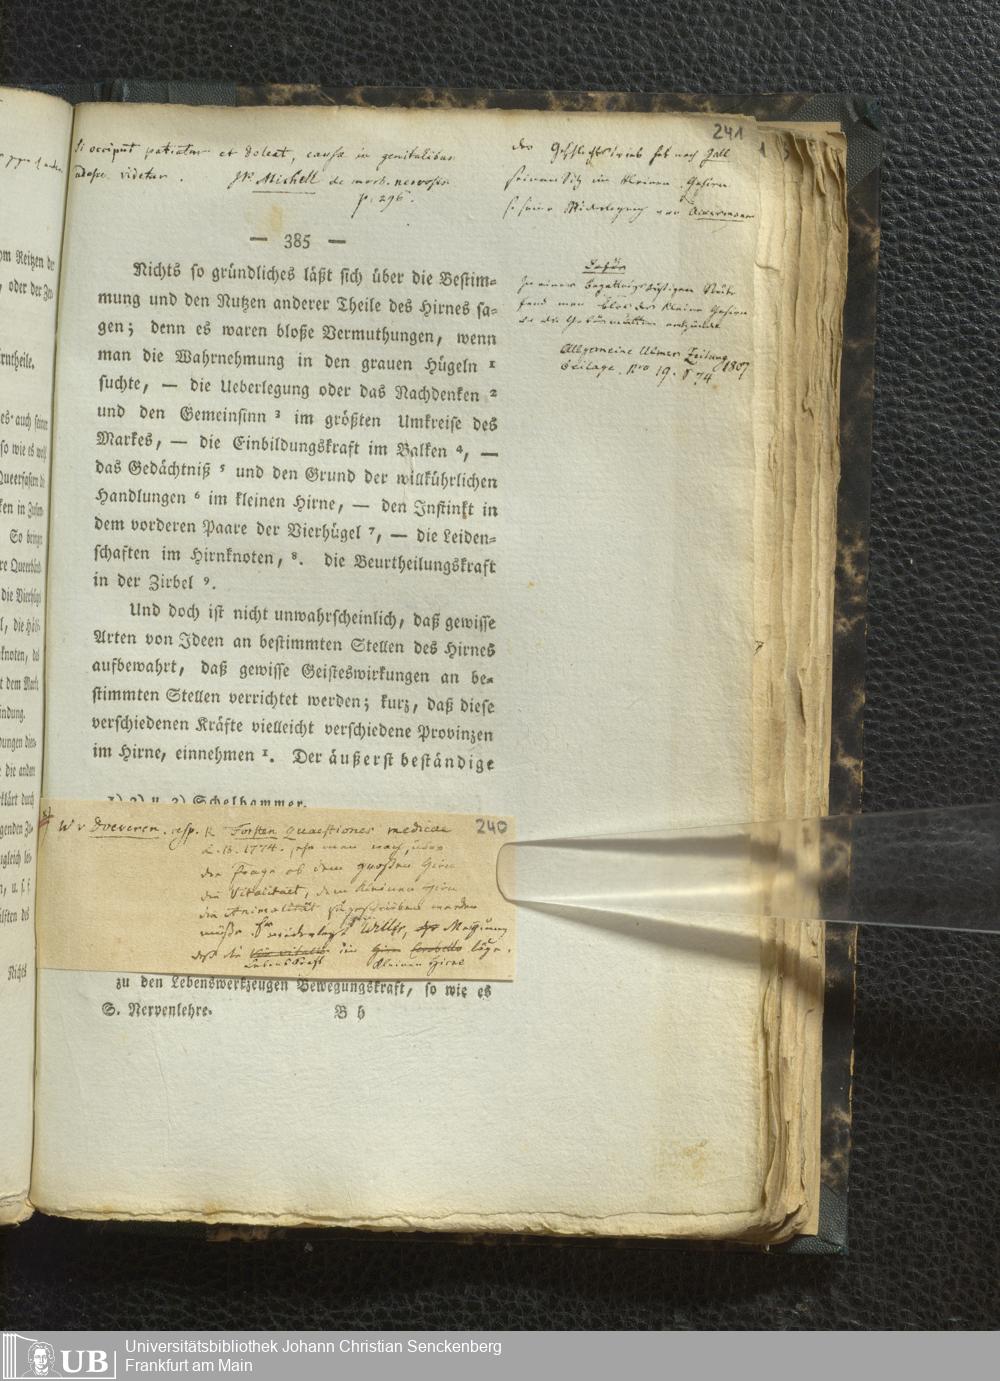 241
Si occiput patiatur et doleat, causa in genitalibus
adesse videtur. Mishell de morb. nervosis
p. 296.
der Geschlechtstrieb hat nach Gall
seinen Sitz im kleinen Gehirn
s. seine Widerlegung von Ackermann
fand man blos das kleine Gehirn
Allgemeine Zeitung 1807
Beilage. Nro 19. S 74
— 385 —
Nichts so gründliches läßt sich über die Bestim-
mung und den Nutzen anderer Theile des Hirnes sa-
gen; denn es waren bloße Vermuthungen, wenn
man die Wahrnehmung in den grauen Hügeln 1
suchte, — die Ueberlegung oder das Nachdenken 2
und den Gemeinsinn 3 im größten Umkreise des
Markes, — die Einbildungskraft im Balken 4, —
das Gedächtniß 5 und den Grund der willkührlichen
Handlungen 6 im kleinen Hirne, — den Instinkt in
dem vorderen Paare der Vierhügel 7, — die Leiden-
schaften im Hirnknoten, 8. die Beurtheilungskraft
in der Zirbel 9.
Und doch ist nicht unwahrscheinlich, daß gewisse
Arten von Ideen an bestimmten Stellen des Hirnes
aufbewahrt, daß gewisse Geisteswirkungen an be-
stimmten Stellen verrichtet werden; kurz, daß diese
verschiedenen Kräfte vielleicht verschiedene Provinzen
im Hirne, einnehmen 1. Der äußerst beständige
1) 2) u. 3) Schelhammer.
240
W v Doeveren. resp. Forsten Quaestiones medicae
L. B. 1774.
die Frage ob dem großen Hirn
die Vitalitaet, dem kleinen Hirn
die Animalität zugeschrieben werden
müsse. widerlegt Meynung
daß die vis vitalis im Cerebello läge.
Lebenskraft kleinen Hirne
zu den Lebenswerkzeugen Bewegungskraft, so wie es
S. Nervenlehre. B b
Universitätsbibliothek Johann Christian Senckenberg
Frankfurt am Main
UB